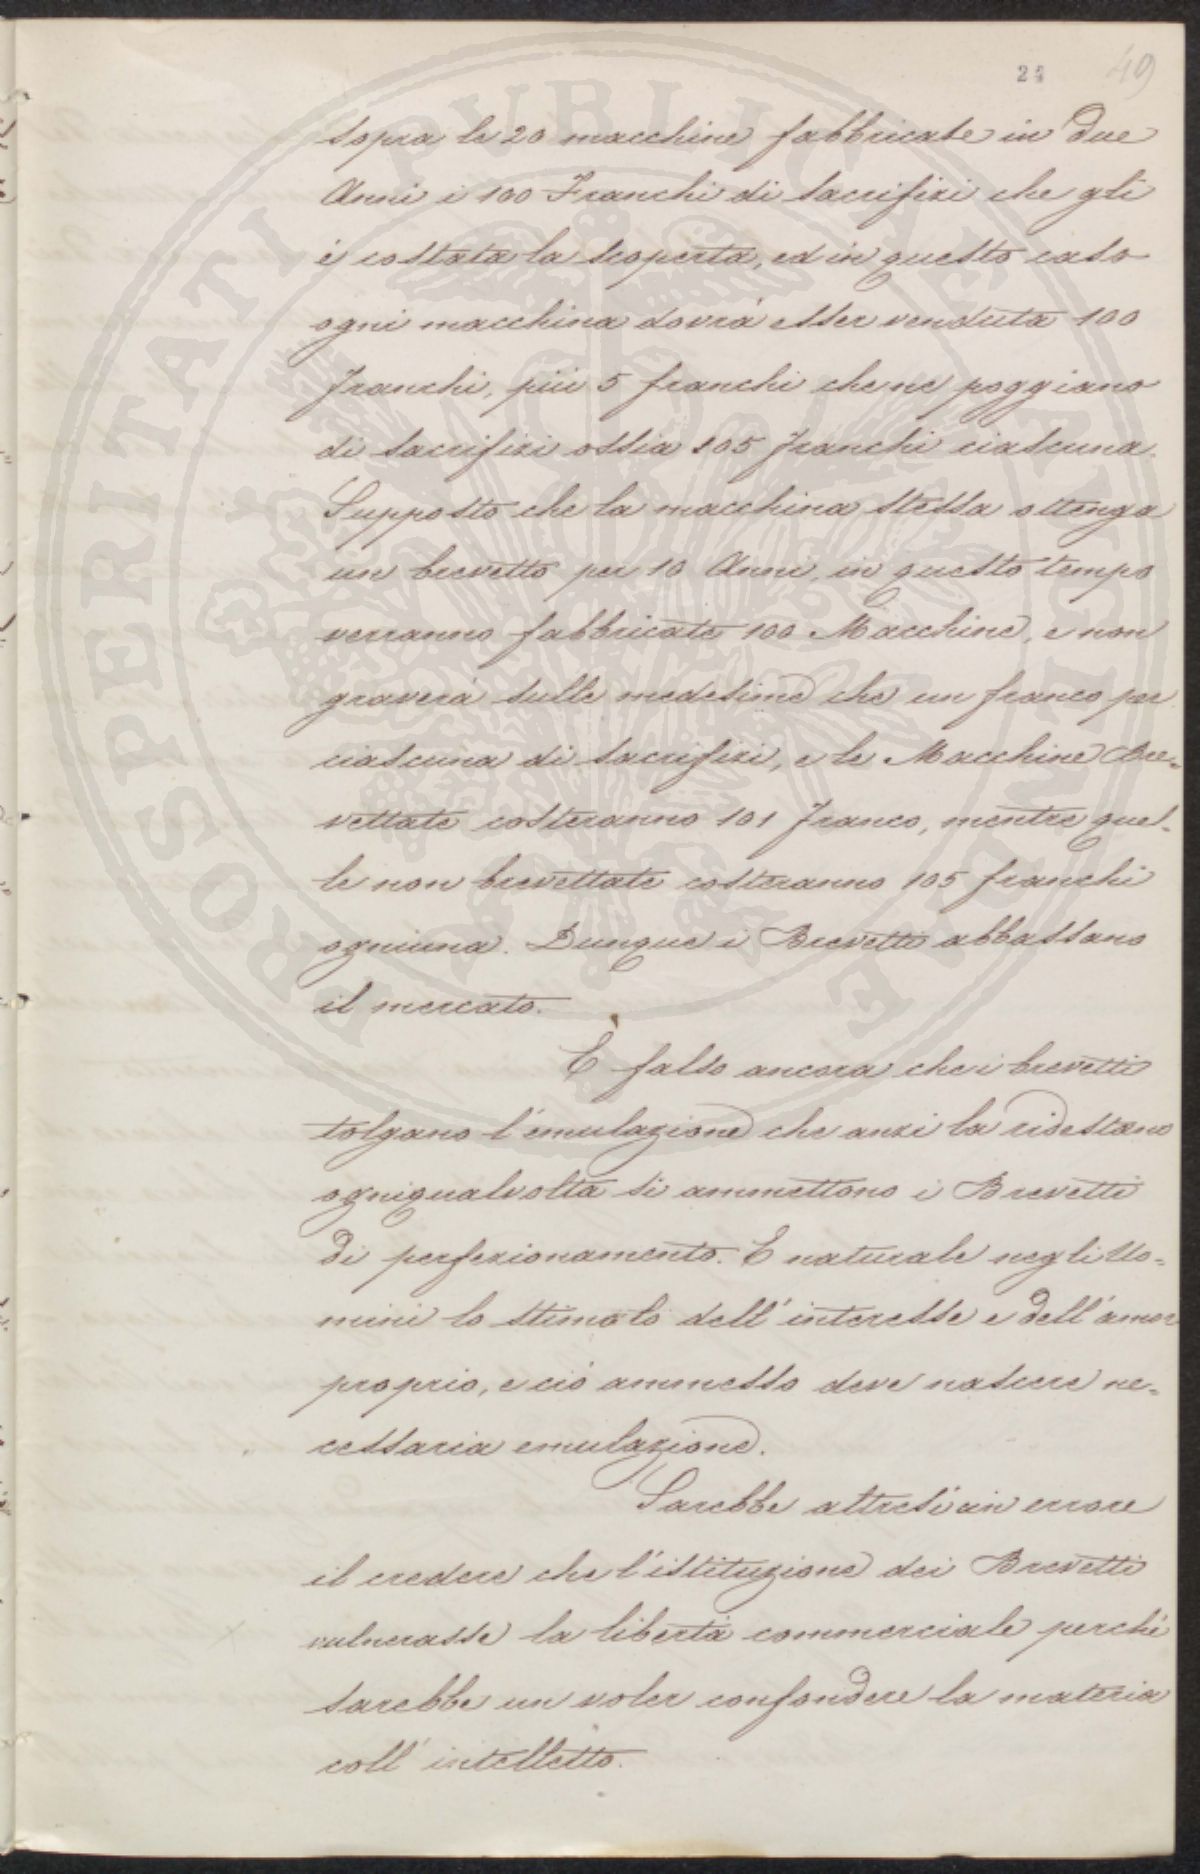 24 49
sopra le 20 macchine fabbricate in due
Anni i 100 Franchi di sacrifizi che gli
è costata la scoperta, ed in questo caso
ogni macchina dovrà esser venduta 100
Franchi, più 5 franchi che ne poggiano
di sacrifizi ossia 105 Franchi ciascuna.
Supposto che la macchina stessa ottenga
un brevetto per 10 Anni, in questo tempo
verranno fabbricate 100 Macchine, e non
graverà sulle medesime che un franco per
ciascuna di sacrifizi, e le Macchine Bre=
vettate costeranno 101 Franco, mentre quel=
le non brevettate costeranno 105 franchi
ogniuna. Dunque i Brevetti abbassano
il mercato.
È falso ancora che i brevetti
tolgano l'emulazione che anzi la ridestano
ogniqualvolta si ammettono i Brevetti
di perfezionamento. E naturale negli Uo=
mini lo stimolo dell'interesse e dell'amor
proprio, e ciò ammesso deve nascere ne=
cessaria emulazione.
Sarebbe altresì un errore
il credere che l'istituzione dei Brevetti
vulnerasse la libertà commerciale perchè
sarebbe un voler confondere la materia
coll'intelletto.
PROSPERITATI PUBLICAE AUGENDAE